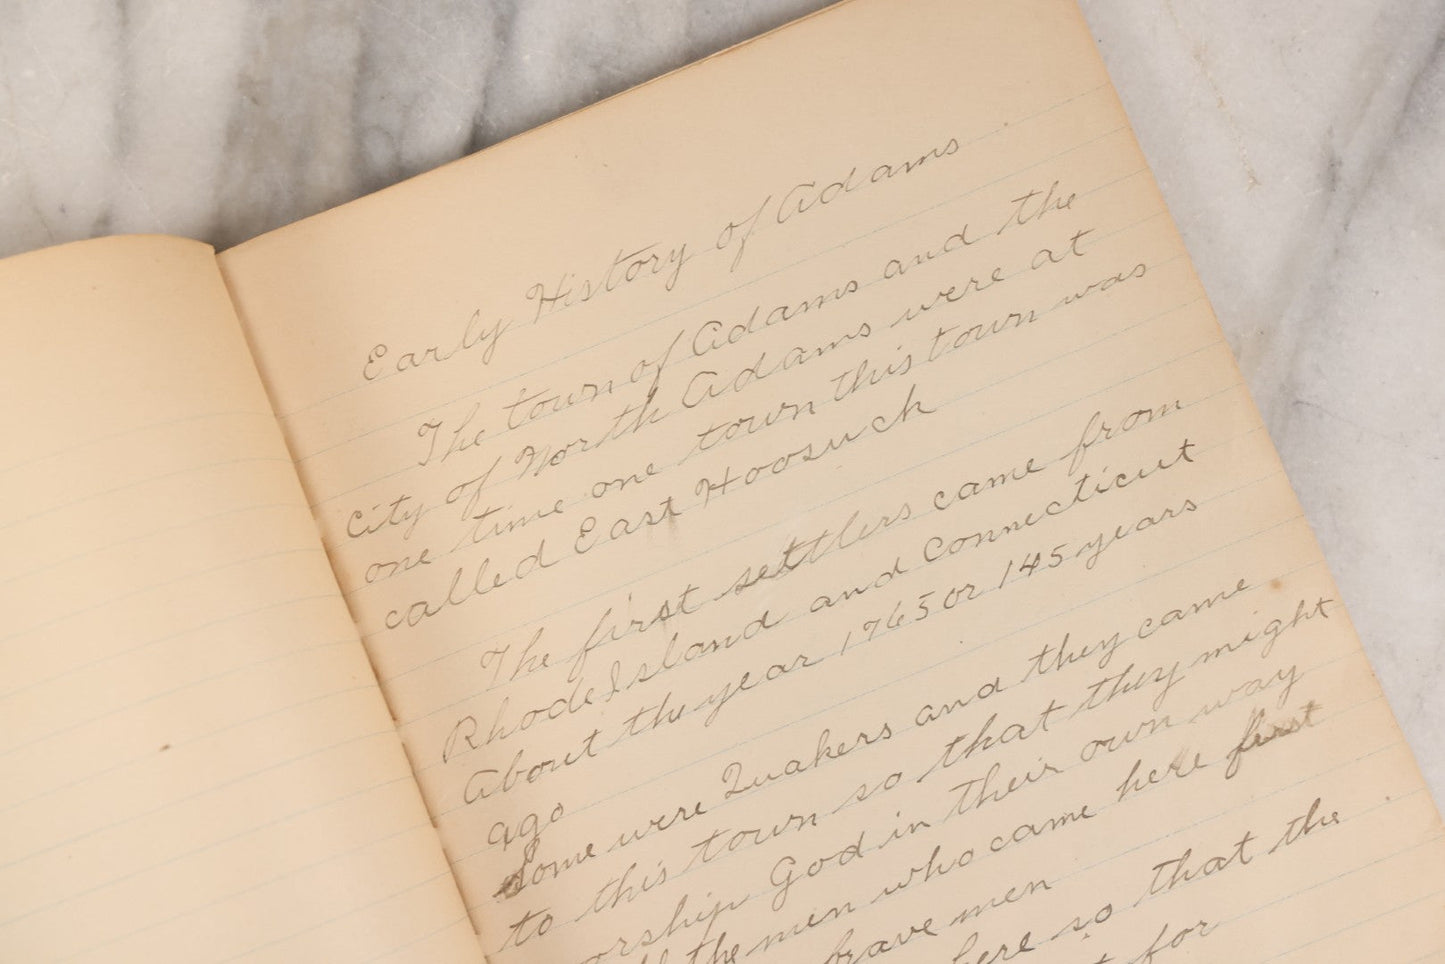 Early History of Adams
The town of Adams and the
city of North Adams were at
one time one town this town was
called East Hoosuck
The first settlers came from
Rhode Island and Connecticut
About the year 1765 or 145 years
ago
Some were Quakers and they came
to this town so that they might
orship God in their own way
the men who came here first
brave men
here so that the
for